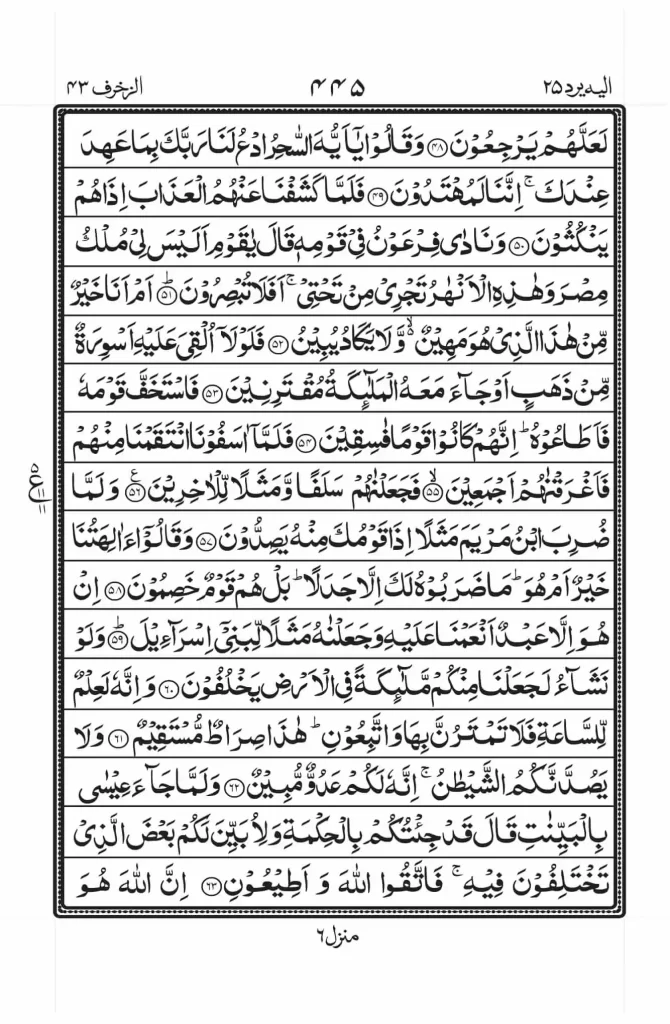 الیه یرد ۲۵ ۴۴۵ الزخرف ۴۳
لَعَلَّهُمْ يَرْجِعُوْنَ ﴿۴۸﴾ وَقَالُوْا يٰۤاَيُّهَ السّٰحِرُ ادْعُ لَنَا رَبَّكَ بِمَا عَهِدَ
عِنْدَكَ ۚ اِنَّنَا لَمُهْتَدُوْنَ ﴿۴۹﴾ فَلَمَّا كَشَفْنَا عَنْهُمُ الْعَذَابَ اِذَا هُمْ
يَنْكُثُوْنَ ﴿۵۰﴾ وَنَادٰى فِرْعَوْنُ فِيْ قَوْمِهٖ قَالَ يٰقَوْمِ اَلَيْسَ لِيْ مُلْكُ
مِصْرَ وَهٰذِهِ الْاَنْهٰرُ تَجْرِيْ مِنْ تَحْتِيْ ۚ اَفَلَا تُبْصِرُوْنَ ﴿۵۱﴾ؕ اَمْ اَنَا خَيْرٌ
مِّنْ هٰذَا الَّذِيْ هُوَ مَهِيْنٌ ۙ۬ وَّلَا يَكَادُ يُبِيْنُ ﴿۵۲﴾ فَلَوْلَاۤ اُلْقِيَ عَلَيْهِ اَسْوِرَةٌ
مِّنْ ذَهَبٍ اَوْ جَآءَ مَعَهُ الْمَلٰٓئِكَةُ مُقْتَرِنِيْنَ ﴿۵۳﴾ فَاسْتَخَفَّ قَوْمَهٗ
فَاَطَاعُوْهُ ؕ اِنَّهُمْ كَانُوْا قَوْمًا فٰسِقِيْنَ ﴿۵۴﴾ فَلَمَّاۤ اٰسَفُوْنَا انْتَقَمْنَا مِنْهُمْ
فَاَغْرَقْنٰهُمْ اَجْمَعِيْنَ ﴿۵۵﴾ۙ فَجَعَلْنٰهُمْ سَلَفًا وَّمَثَلًا لِّلْاٰخِرِيْنَ ﴿۵۶﴾ع وَلَمَّا
۵ ع ۱۱ ۱۱
ضُرِبَ ابْنُ مَرْيَمَ مَثَلًا اِذَا قَوْمُكَ مِنْهُ يَصِدُّوْنَ ﴿۵۷﴾ وَقَالُوْٓا ءَاٰلِهَتُنَا
خَيْرٌ اَمْ هُوَ ؕ مَا ضَرَبُوْهُ لَكَ اِلَّا جَدَلًا ؕ بَلْ هُمْ قَوْمٌ خَصِمُوْنَ ﴿۵۸﴾ اِنْ
هُوَ اِلَّا عَبْدٌ اَنْعَمْنَا عَلَيْهِ وَجَعَلْنٰهُ مَثَلًا لِّبَنِيْٓ اِسْرَآءِيْلَ ﴿۵۹﴾ؕ وَلَوْ
نَشَآءُ لَجَعَلْنَا مِنْكُمْ مَّلٰٓئِكَةً فِي الْاَرْضِ يَخْلُفُوْنَ ﴿۶۰﴾ وَاِنَّهٗ لَعِلْمٌ
لِّلسَّاعَةِ فَلَا تَمْتَرُنَّ بِهَا وَاتَّبِعُوْنِ ؕ هٰذَا صِرَاطٌ مُّسْتَقِيْمٌ ﴿۶۱﴾ وَلَا
يَصُدَّنَّكُمُ الشَّيْطٰنُ ۚ اِنَّهٗ لَكُمْ عَدُوٌّ مُّبِيْنٌ ﴿۶۲﴾ وَلَمَّا جَآءَ عِيْسٰى
بِالْبَيِّنٰتِ قَالَ قَدْ جِئْتُكُمْ بِالْحِكْمَةِ وَلِاُبَيِّنَ لَكُمْ بَعْضَ الَّذِيْ
تَخْتَلِفُوْنَ فِيْهِ ۚ فَاتَّقُوا اللّٰهَ وَ اَطِيْعُوْنِ ﴿۶۳﴾ اِنَّ اللّٰهَ هُوَ
منزل ۶